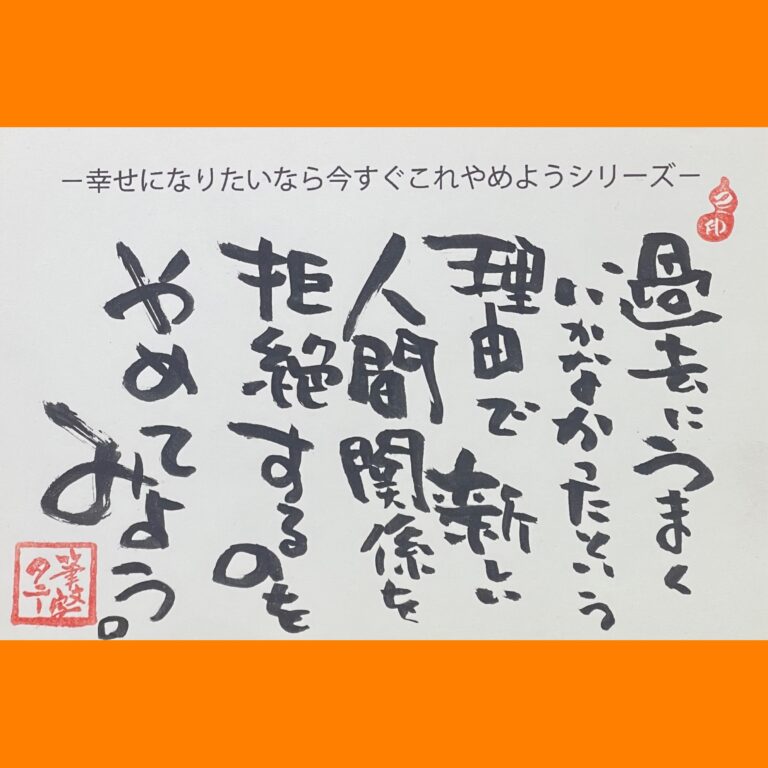 －幸せになりたいなら今すぐこれやめようシリーズ－
過去にうまく
いかなかったという
理由で新しい
人間関係を
拒絶するのを
やめて
みよう。